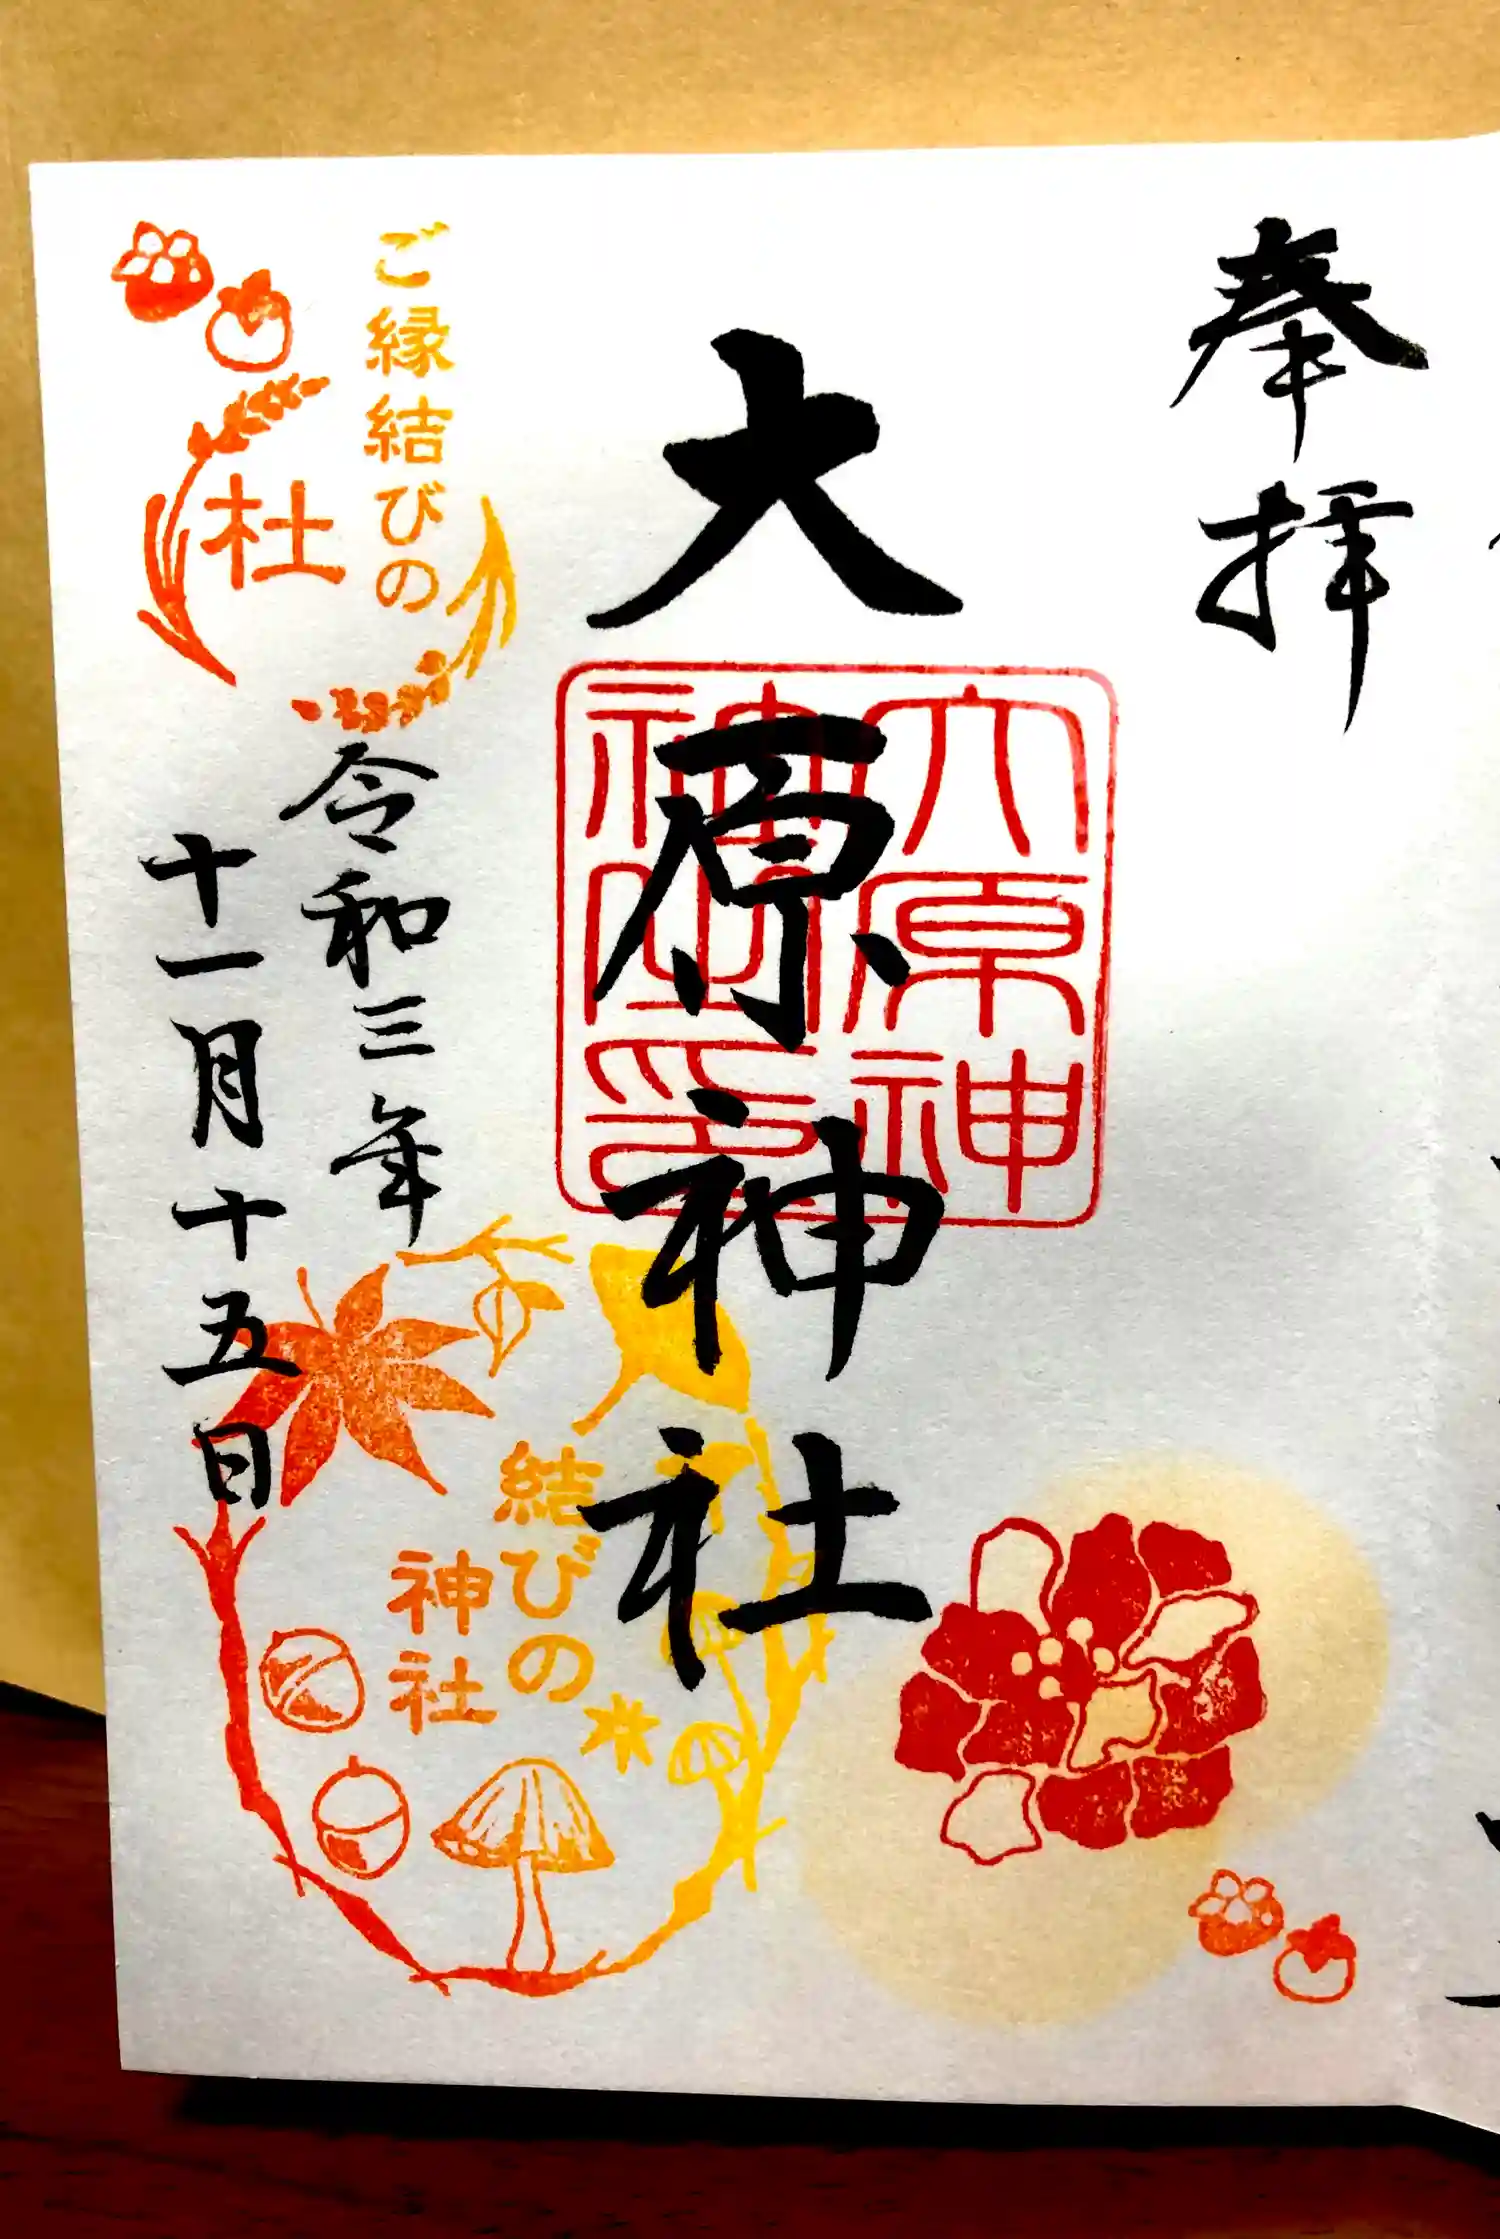 奉拝
大原神社
大原神
社之印
ご縁結びの
杜
令和三年
十一月十五日
結びの
神社